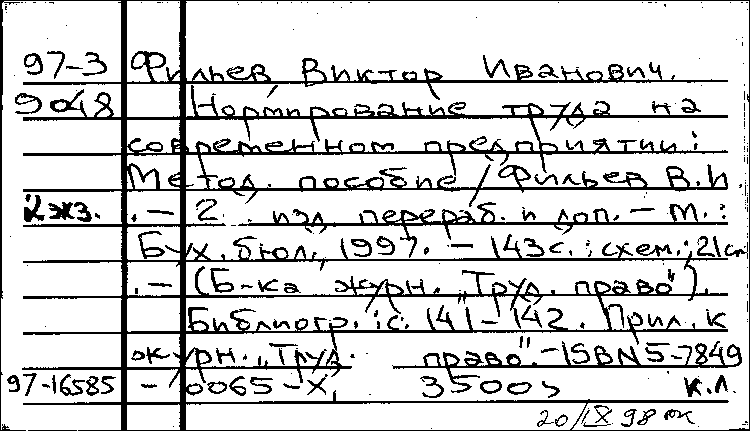 97-3 Фильев, Виктор Иванович.
9048 Нормирование труда на
современном предприятии:
Метод. пособие / Фильев В.И.
2 экз. .- 2 изд. перераб. и доп. - М.:
Бух. бюл., 1997. - 143 с.: схем.; 21 см
.- (Б-ка журн. "Труд. право").
Библиогр.: с. 141-142. Прил. к
журн. "Труд. право". - ISBN 5-7849
97-16585 -0065-X, 3500 к.л.
20/IX 98